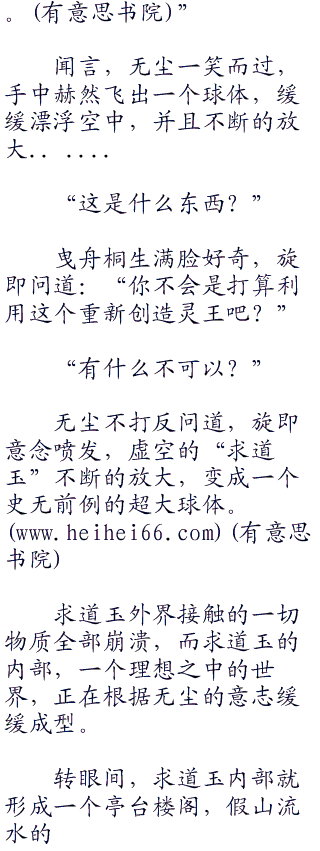 。(有意思书院)”
闻言，无尘一笑而过，
手中赫然飞出一个球体，缓
缓漂浮空中，并且不断的放
大．．．．．．
“这是什么东西？”
曳舟桐生满脸好奇，旋
即问道：“你不会是打算利
用这个重新创造灵王吧？”
“有什么不可以？”
无尘不打反问道，旋即
意念喷发，虚空的“求道
玉”不断的放大，变成一个
史无前例的超大球体。
(www.heihei66.com)(有意思
书院)
求道玉外界接触的一切
物质全部崩溃，而求道玉的
内部，一个理想之中的世
界，正在根据无尘的意志缓
缓成型。
转眼间，求道玉内部就
形成一个亭台楼阁，假山流
水的